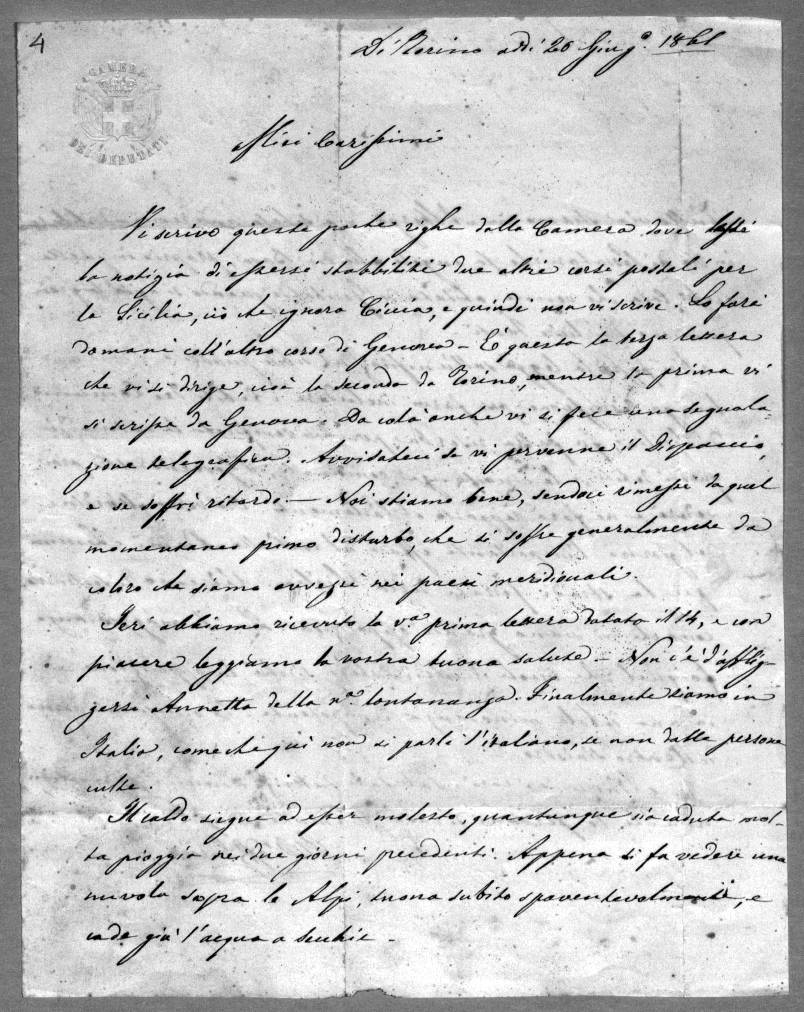 4
Di Torino addì 26 Giug.º 1861
CAMERA
DEI DEPUTATI
Amici Carissimi
Vi scrivo queste poche righe dalla Camera dove
la notizia di essersi stabbiliti due altri corsi postali per
la Sicilia, ciò che ignora Ciccia, e quindi non vi scrive. Lo farà
domani coll'altro corso di Genova – È questa la terza lettera
che vi si dirige, cioè la seconda da Torino, mentre la prima vi
si scrisse da Genova. Da colà anche vi si fece una segnala-
zione telegrafica. Avvisateci se vi pervenne il Dispaccio,
e se soffrì ritardo. — Noi stiamo bene, sendoci rimessi da quel
momentaneo primo disturbo, che si soffre generalmente da
coloro che siamo avvezzi nei paesi meridionali.
Jeri abbiamo ricevuto la vª prima lettera datata il 14, e con
piacere leggiamo la vostra buona salute – Non c'è d'afflig-
gersi Annetta della nª. lontananza. Finalmente siamo in
Italia, comechè quì non si parli l'italiano, se non dalle persone
culte.
Il caldo siegue ad esser molesto, quantunque sia caduta mol-
ta pioggia nei due giorni precedenti. Appena si fa vedere una
nuvola sopra le Alpi, tuona subito spaventevolmente, e
cade già l'acqua a secchie –